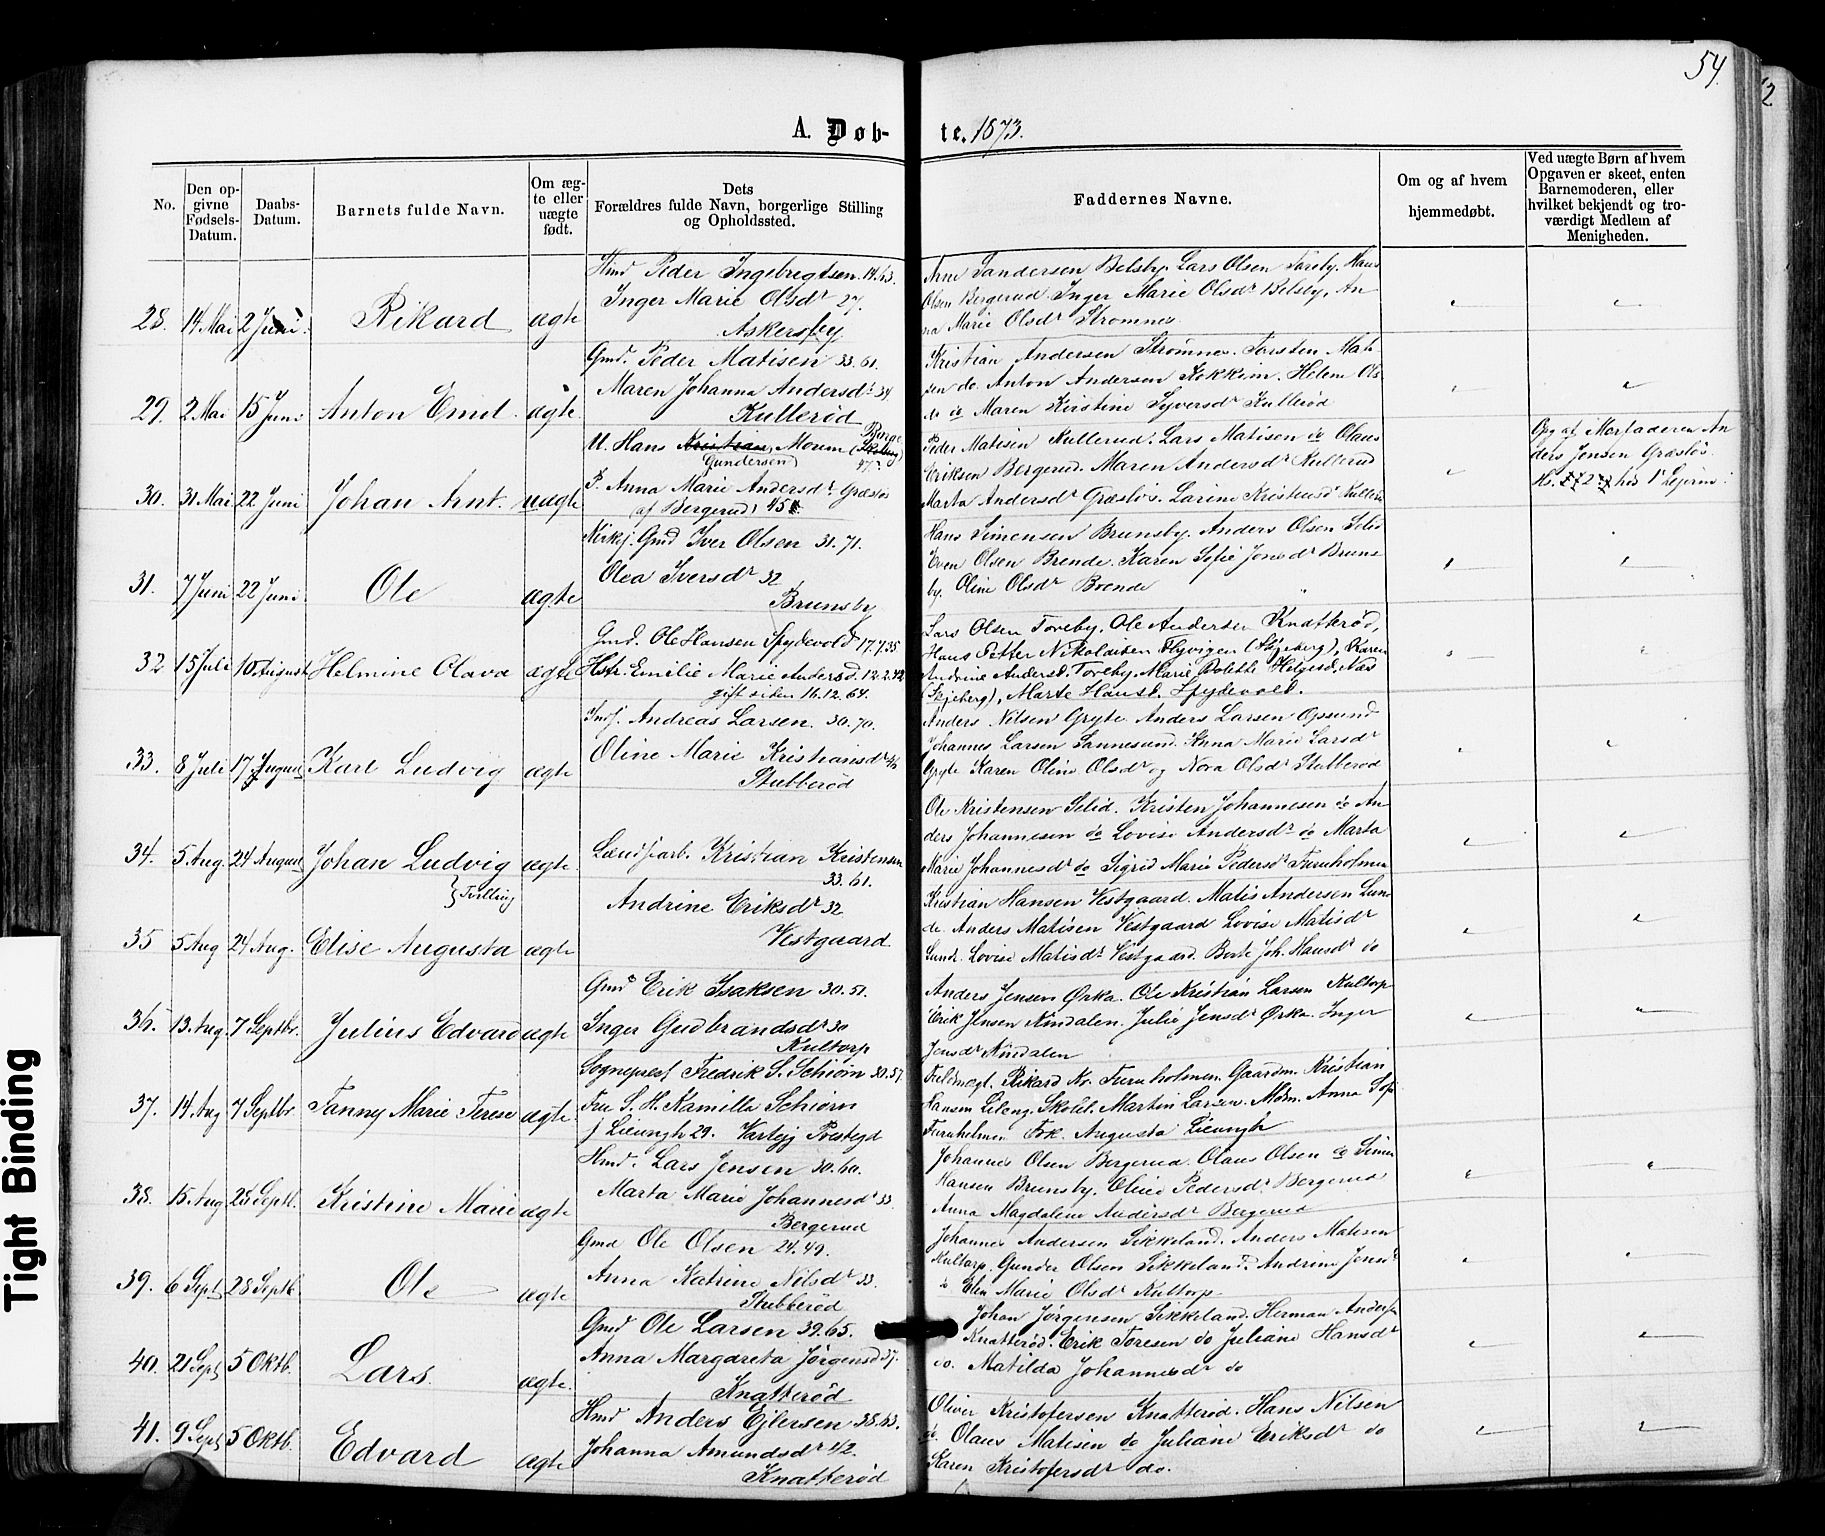 54.
A. Døb-
te. 1873.
No.
Den op-
givne
Fødsels-
Datum.
Daabs-
Datum.
Barnets fulde Navn.
Om æg-
te eller
uægte
født.
Dets
Forældres fulde Navn, borgerlige Stilling
og Opholdssted.
Faddernes Navne.
Om og af hvem
hjemmedøbt.
Ved uægte Børn af hvem
Opgaven er skeet, enten
Barnemoderen, eller
hvilket bekjendt og tro-
værdigt Medlem af
Menigheden.
28. 14 Mai 2 Juni. Rikard ægte
Hmd Peder Ingebrigtsen 14.63.
Inger Marie Olsdr 27.
Askersby
Arne Sandersen Belsby. Lars Olsen Toreby. Hans
Olsen Bergerud. Inger Marie Olsdr Belsby, An
na Marie Olsdr Strømnes.
29. 2 Mai 15 Juni Anton Emil. ægte.
Gmd. Peder Matisen 33.61.
Maren Johanna Andersdr 34
Kullerød
Kristian Andersen Strømnes. Torsten Mati
sen do. Anton Andersen Kokkim. Helene Ols
dr do Maren Kirstine Syversdr Kullerød
30. 31 Mai 22 Juni Johan Arnt. uægte
U. Hans Kristian Moum
Gundersen
47.
P. Anna Marie Andersdr. Græsløs
(af Bergerud) 45
Peder Matisen Kullerud. Lars Matisen do Olaus
Eriksen Bergerud. Maren Andersdr Kullerud
Marta Andersdr Græsløs. Larine Kristensdr Kullerø
Opg af Morfaderen An
ders Jensen Græsløs.
31. 7 Juni 22 Juni Ole ægte
Kirkej. Gmd Iver Olsen 31.71.
Olea Iversdr 32
Brunsby
Hans Simensen Brunsby. Anders Olsen Selid
Even Olsen Brende. Karen Sofie Jonsdr Bruns
by. Oline Olsdr Brende
32 15 Juli 10 August Helmine Olava ægte
Gmd. Ole Hansen Spydevold 17.7.35
Hstr. Emilie Marie Andersd. 12.2.42
gift siden 16.12.64.
Lars Olsen Toreby, Ole Andersen Knatterød,
Hans Petter Nikolaisen Flyvigen (Skjeberg), Karen
Andrine Andersd. Toreby, Marie Bolette Helgesd. Næs
(Skjeberg), Marte Hansd. Spydevold.
33. 8 Juli 17 August Karl Ludvig ægte
Inds. Andreas Larsen. 30.70.
Oline Marie Kristiansdr 46
Stubberød
Anders Nilsen Gryte. Anders Larsen Opsund
Johannes Larsen Sannesund. Anna Marie Larsdr
Gryte. Karen Oline Olsdr og Nora Olsdr Stubberød
34. 5 Aug. 24 August Johan Ludvig ægte.
Tvilling
Landsarb. Kristian Kristensen
33.61.
Andrine Eriksdr 32
Vestgaard
Ole Kristensen Selid. Kristen Johannesen do An
ders Johannesen do Lovise Andersdr do Marta
Marie Johannesdr do Sigrid Marie Pedersdr Furuholmen
35 5 Aug 24 Aug. Elise Augusta ægte
Kristian Hansen Vestgaard. Matis Andersen Lun
de. Anders Matisen Vestgaard Lovise Matisdr
Lunde. Lovise Matisdr Vestgaard. Berte Joh. Hansdr do
36. 13 Aug. 7 Septbr. Julius Edvard ægte
Gmd Erik Isaksen 30.51.
Inger Gudbrandsdr 30
Kultorp
Anders Jensen Ørka. Ole Kristian Larsen Kultorp
Erik Jensen Nindalen. Julie Jensdr Ørka. Inger
Jensdr Nindalen
37. 14 Aug 7 Septbr Fanny Marie Terese ægte.
Sognepræst Fredrik S. Schiørn 30.57.
Fru S. H. Kamilla Schiørn
f. Lieungh 29. Varteig Præstegd
Fuldmægt. Rikard Kr. Furuholmen. Gaardm. Kristian
Hansen Leleng. Skolel. Martin Larsen. Mdm. Anna Sof
Furuholmen Frk. Augusta Lieungh
38. 15 Aug 28 Septb. Kristine Marie ægte
Hmd. Lars Jensen 30.60.
Marta Marie Johannesdr 33
Bergerud
Johannes Olsen Bergerud. Olaus Olsen do Simen
Hansen Brunsby. Oline Pedersdr Bergerud
Anna Magdalene Andersdr Bergerud
39. 6 Sept 28 Septb. Ole ægte
Gmd Ole Olsen 24.49.
Anna Katrine Nilsdr 33.
Stubberød
Johannes Andersen Sikkeland. Anders Matisen
Kultorp. Gunder Olsen Sikkeland. Andrine Jensdr
do Elen Marie Olsdr Kultorp.
40. 21 Sept 5 Oktb. Lars. ægte.
Gmd Ole Larsen 39.65.
Anna Margareta Jørgensd 37.
Knatterød
Johan Jørgensen Sikkeland. Herman Anders
Knatterød. Erik Toresen do Juliane Hansdr
do. Matilda Johannesdr do
41. 9 Sept 5 Oktb. Edvard ægte
Hmd Anders Ejlersen 38.63.
Johanna Amundsdr 42
Knatterød
Oliver Kristofersen Knatterød. Hans Nilsen
do. Olaus Matisen do Juliane Eriksdr do
Karen Kristofersdr do.
Tight Binding